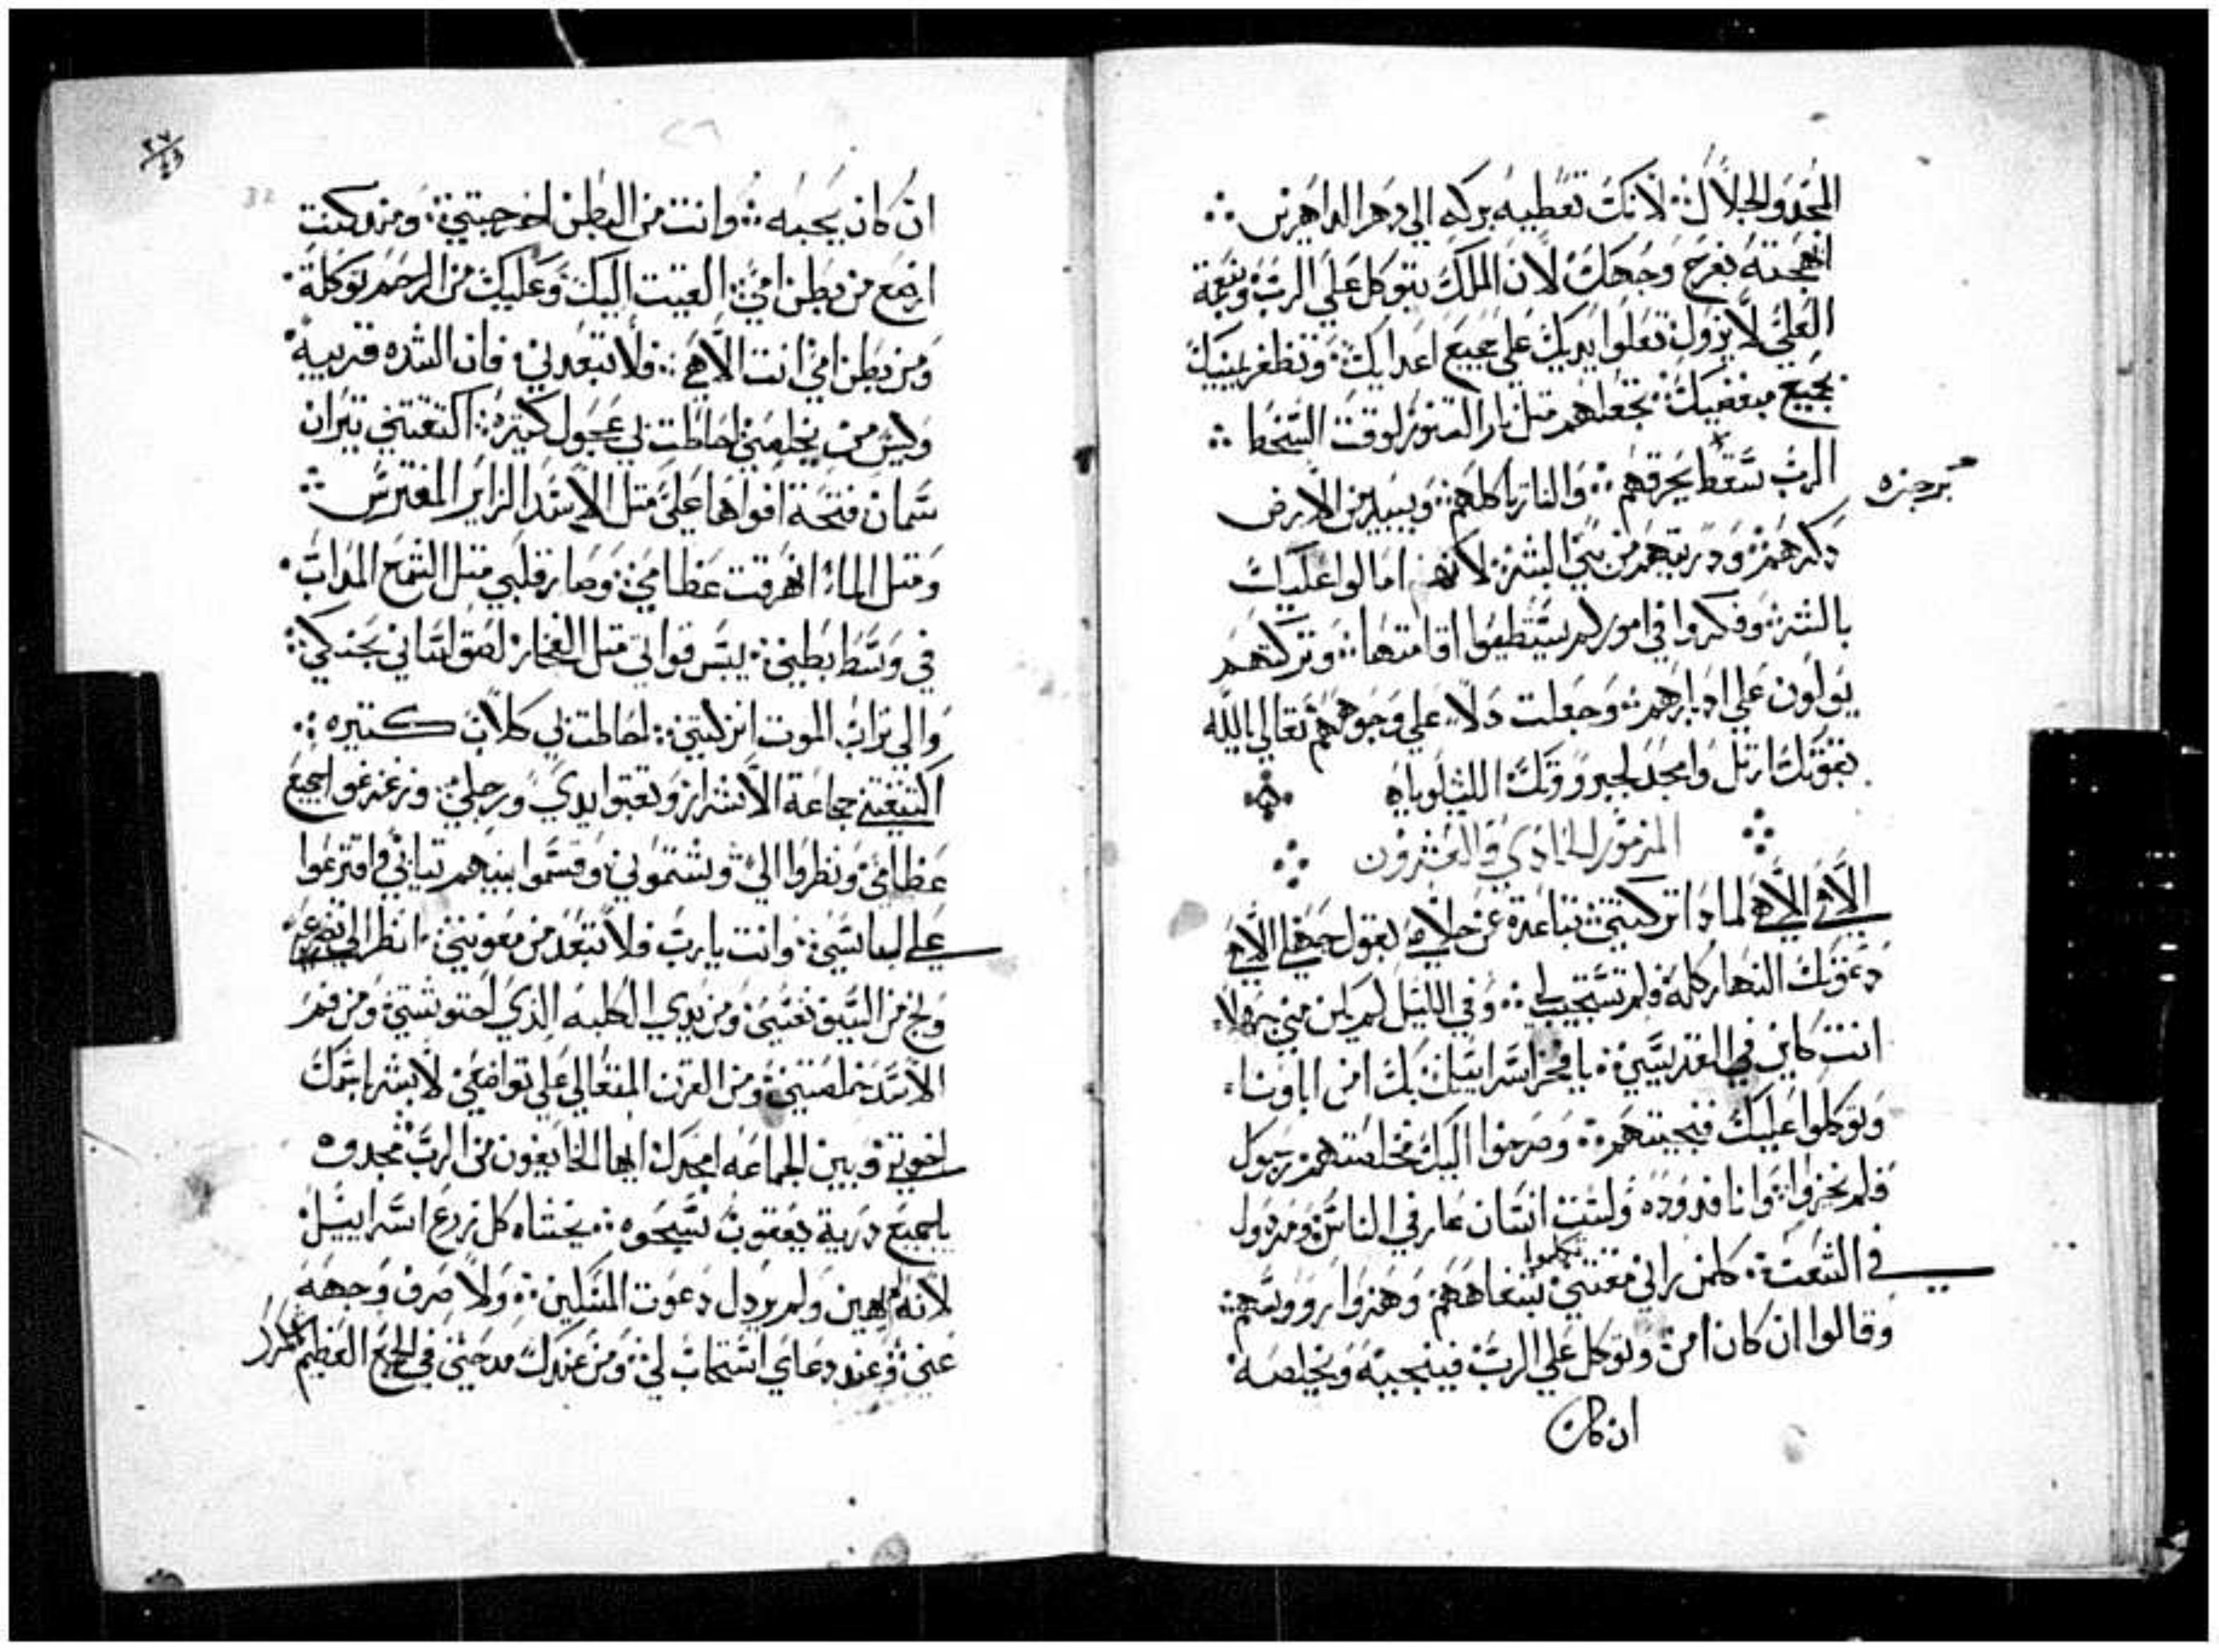 المجد والجلال؛ لانك تعطيه بركه الي دهر الداهرين
ابهجته بفرح وجهك لان الملك يتوكل علي الرب ونعمة
العلي لا تزول تعلوا يديك علي جميع اعدايك؛ وتظفر يمينك
بجميع مبغضيك؛ تجعلهم متل نار التنور لوقت السخط
الرب بسخطه يحرقهم؛ والنار تاكلهم؛ ويبيد من الارض
برجزه
دكرهم؛ ودريتهم من بني البشر؛ لانهم امالوا عليك
بالشر؛ وفكروا في امور لم يستطيعوا اقامتها؛ وتركتهم
يولون علي ادبارهم؛ وجعلت دلا علي وجوههم تعالي ياالله
بقوتك ارتل وامجد لجبروتك الليلوياه
المزمور الحادي والعشرون
الاهي الاهي لمادا تركتني؛ تباعدة عن خلاصي بقول جهلي الاهي
دعوتك النهار كله فلم تستجب لي؛ وفي الليل لم يكن مني جهلا
انت كاين في القديسين؛ يا فخر اسراييل بك امن اباونا
وتوكلوا عليك فنجيتهم؛ وصرخوا اليك فخلصتهم؛ رجوك
فلم يخزوا؛ وانا فدوده ولست انسان عار في الناس؛ ومردول
في الشعب؛ كلمن راني مقتني تكلموا بشفاههم؛ وهزوا رووسهم؛
وقالوا ان كان امن وتوكل علي الرب فينجيه ويخلصه
ان كان
٢٧
ان كان يحبه؛ وانت من البطن اخرجتني؛ ومند كنت
ارضع من بطن امي؛ القيت اليك وعليك من الرحم توكلة
ومن بطن امي انت الاهي؛ فلا تبعد لي؛ فان الشده قريبة
وليس من يخلصني احاطت بي عجول كتيره؛ اكتنفتني تيران
سمان فتحة افواهها علي متل الاسد الزاير المفترس
ومتل الماء انهرقت عظامي؛ وصار قلبي متل الشمع المداب
في وسط بطني؛ يبس قواتي متل الفخار؛ لصق لساني بحنكي
والي تراب الموت انزلتني؛ احاطت بي كلاب كتيره
اكتنفتني جماعة الاشرار وتقبوا يدي ورجلي؛ وزعزعوا جميع
عظامي؛ ونظروا الي وشتموني؛ وقسموا بينهم تيابي واقترعوا
علي لباسي؛ وانت يارب فلا تبعد من معونتي؛ انظر الي تضرعي
ونج من السيف نفسي؛ ومن يدي الكلبه الذي احتوشتني ومن فم
الاسد خلصتني؛ ومن القرن المتعالي علي تواضعي؛ لابشر باسمك
اخوتي وبين الجماعه امجدك ايها الخايفون من الرب مجدوه
ياجميع درية يعقوب سبحوه؛ يخشاه كل زرع اسراييل
لانه لم يهين ولم يردل دعوت المسكين؛ ولا صرف وجهه
عني؛ وعند دعاي استجاب لي؛ ومن عندك مدحتي في الجمع العظيم